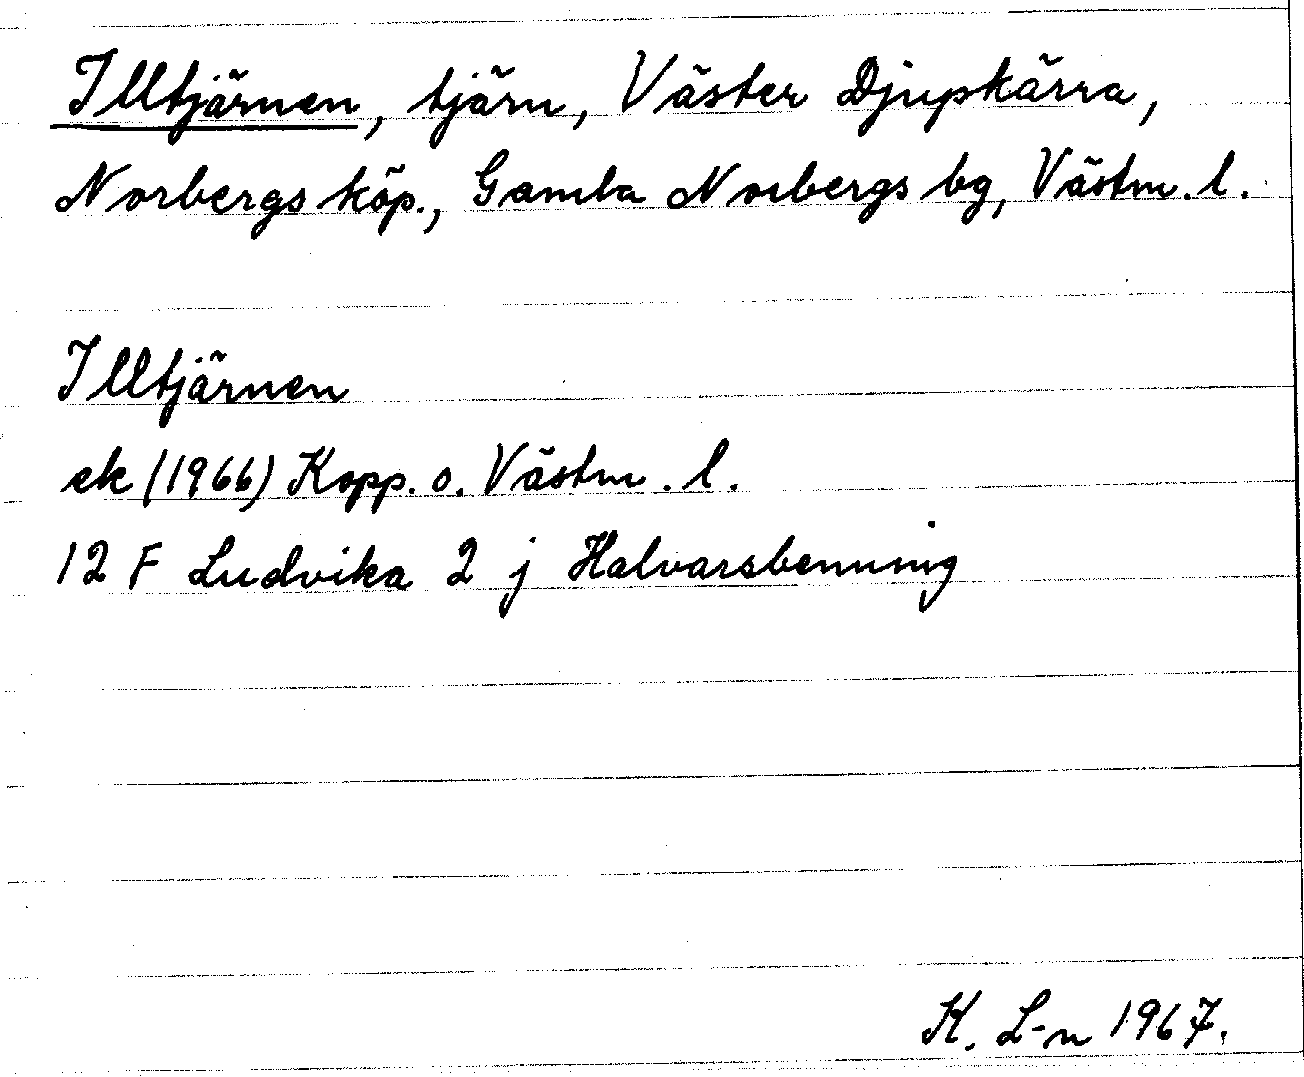 Illtjärnen, tjärn, Väster Djupkärra,
Norbergs köp., Gamla Norbergs bg, Västm. l.
Illtjärnen
ek (1966) Kopp. o. Västm. l.
12 F Ludvika 2 j Halvarsbenning
K. L-n 1967.